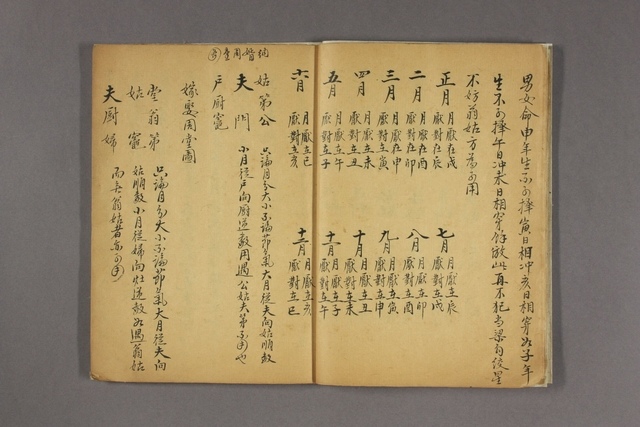 男女命申年生不可擇寅日相冲亥日相穿如子年
生不可擇午日冲未日相穿餘放此再不犯
不妨翁姑方為可用
正月 月厭在戌 厭對在辰
二月 月厭在酉 厭對在卯
三月 月厭在申 厭對立寅
四月 月厭立未 厭對立丑
五月 月厭立午 厭對立子
六月 月厭立巳 厭對立亥
七月 月厭立辰 厭對立戌
八月 月厭立卯 厭對立酉
九月 月厭立寅 厭對立申
十月 月厭立丑 厭對立未
十一月 月厭立子 厭對立午
十二月 月厭立亥 厭對立巳
姑 第 公
夫 門
戶 厨 竈
只論月分大小不論節氣大月從夫向姑順數
小月從戶向厨逆數用遇公姑夫第不可也
嫁娶周堂圖
堂 翁 第
姑 竈
夫 厨 婦
只論月分大小不論節氣大月從夫向
姑順數小月從婦向灶逆數如遇翁姑
而無翁姑者亦可